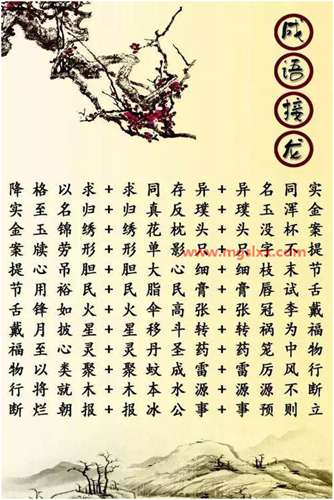 成语接龙
降格以求+求同存异+异名同实
实至名归+归真反璞+璞玉浑金
金玉锦绣+绣花枕头+头没杯案
案牍劳形+形单影只+只字不提
提心吊胆+胆大心细+细枝末节
节用裕民+民脂民膏+膏唇试舌
舌锋如火+火伞高张+张冠李戴
戴月披星+星移斗转+转祸为福
福至心灵+灵丹圣药+药笼中物
物以类聚+聚蚊成雷+雷厉风行
行将就木+木本水源+源源不断
断烂朝报+报冰公事+事预则立